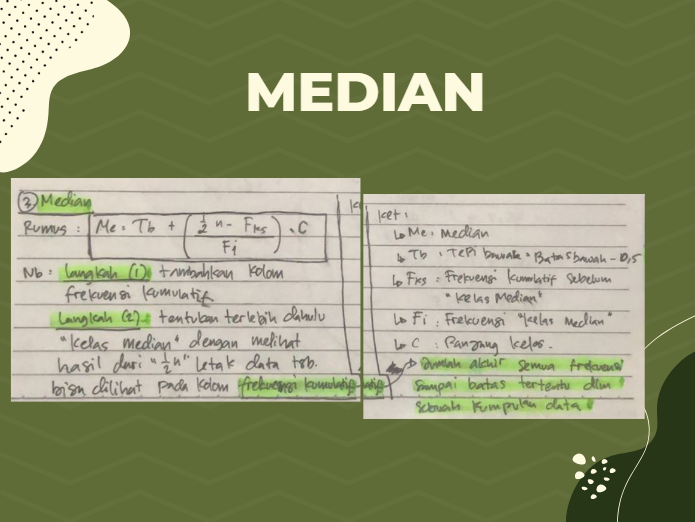 MEDIAN
② Median
Rumus : Me = Tb + (½ n - Fks / Fi) . C
Nb : langkah (1) tambahkan kolom
frekuensi kumulatif
langkah (2). tentukan terlebih dahulu
"kelas median" dengan melihat
hasil dari "½ n" letak data tsb.
bisa dilihat pada kolom frekuensi kumulatif
ket :
↳ Me : median
↳ Tb : TePi bawah = Batas bawah - 0,5
↳ Fks : Frekuensi kumulatif Sebelum
"kelas Median"
↳ Fi : Frekuensi "kelas median"
↳ C : Panjang kelas.
Jumlah akhir semua frekuensi
sampai batas tertentu dlm
sebuah kumpulan data